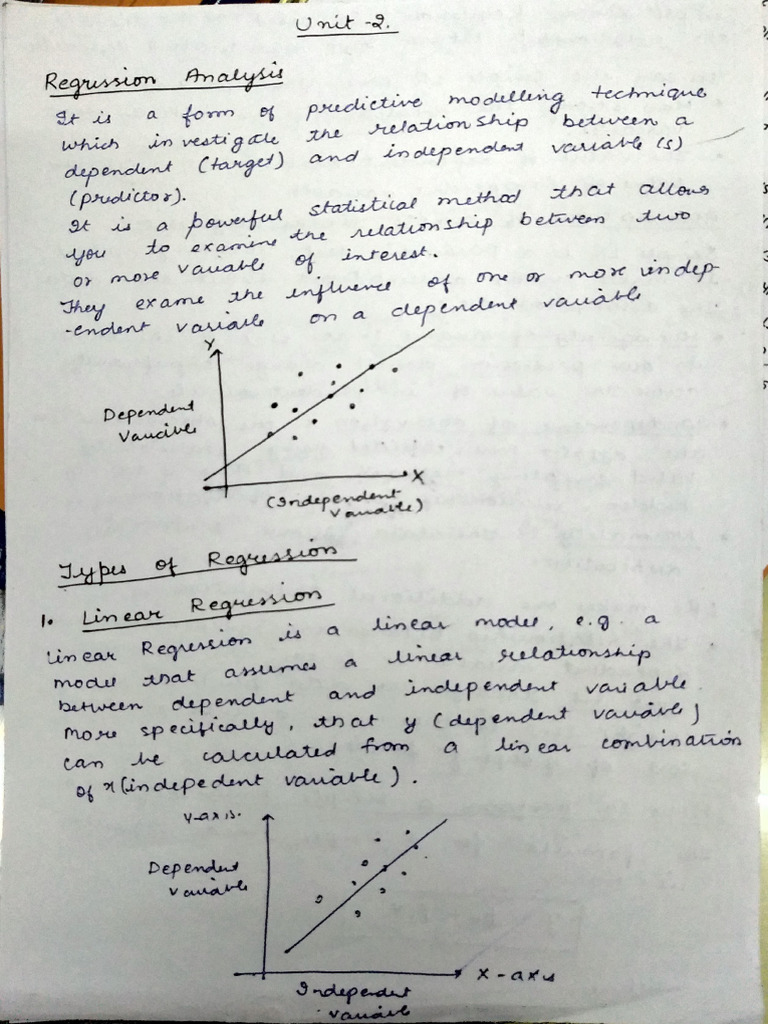 Unit -2.
Regression Analysis
It is a form of predictive modelling technique
which investigate the relationship between a
dependent (target) and independent variable (s)
(predictor).
It is a powerful statistical method that allows
you to examine the relationship between two
or more variable of interest.
They exame the influence of one or more indep-
-endent variable on a dependent variable
Y
Dependent
Variable
X
(Independent
variable)
Types of Regression
1. Linear Regression
Linear Regression is a linear model, e.g. a
model that assumes a linear relationship
between dependent and independent variable.
More specifically, that y (dependent variable)
can be calculated from a linear combination
of x (indepedent variable).
Y-axis.
Dependent
variable
X-axis
Independent
variable